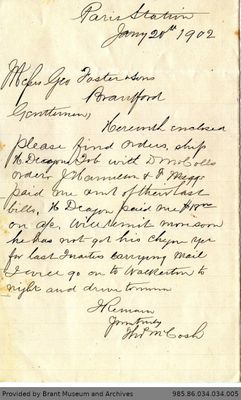 Paris Station
Jany 20th 1902
Messrs Geo Foster & Sons
Brantford
Gentlemen,
Herewith enclosed
please find orders, ship
H Deagon Tob with D McColls
order J Hammelin & F
paid me amt of their last
bills, H Deagon paid me
on a/c. Will remit mon soon
he has not got his cheque yet
for last Quarter carrying mail
I will go on to Walkerton to
night and drive
I Remain
Yours truly
Thos McCosh
Provided by Brant Museum and Archives
985.86.034.034.005